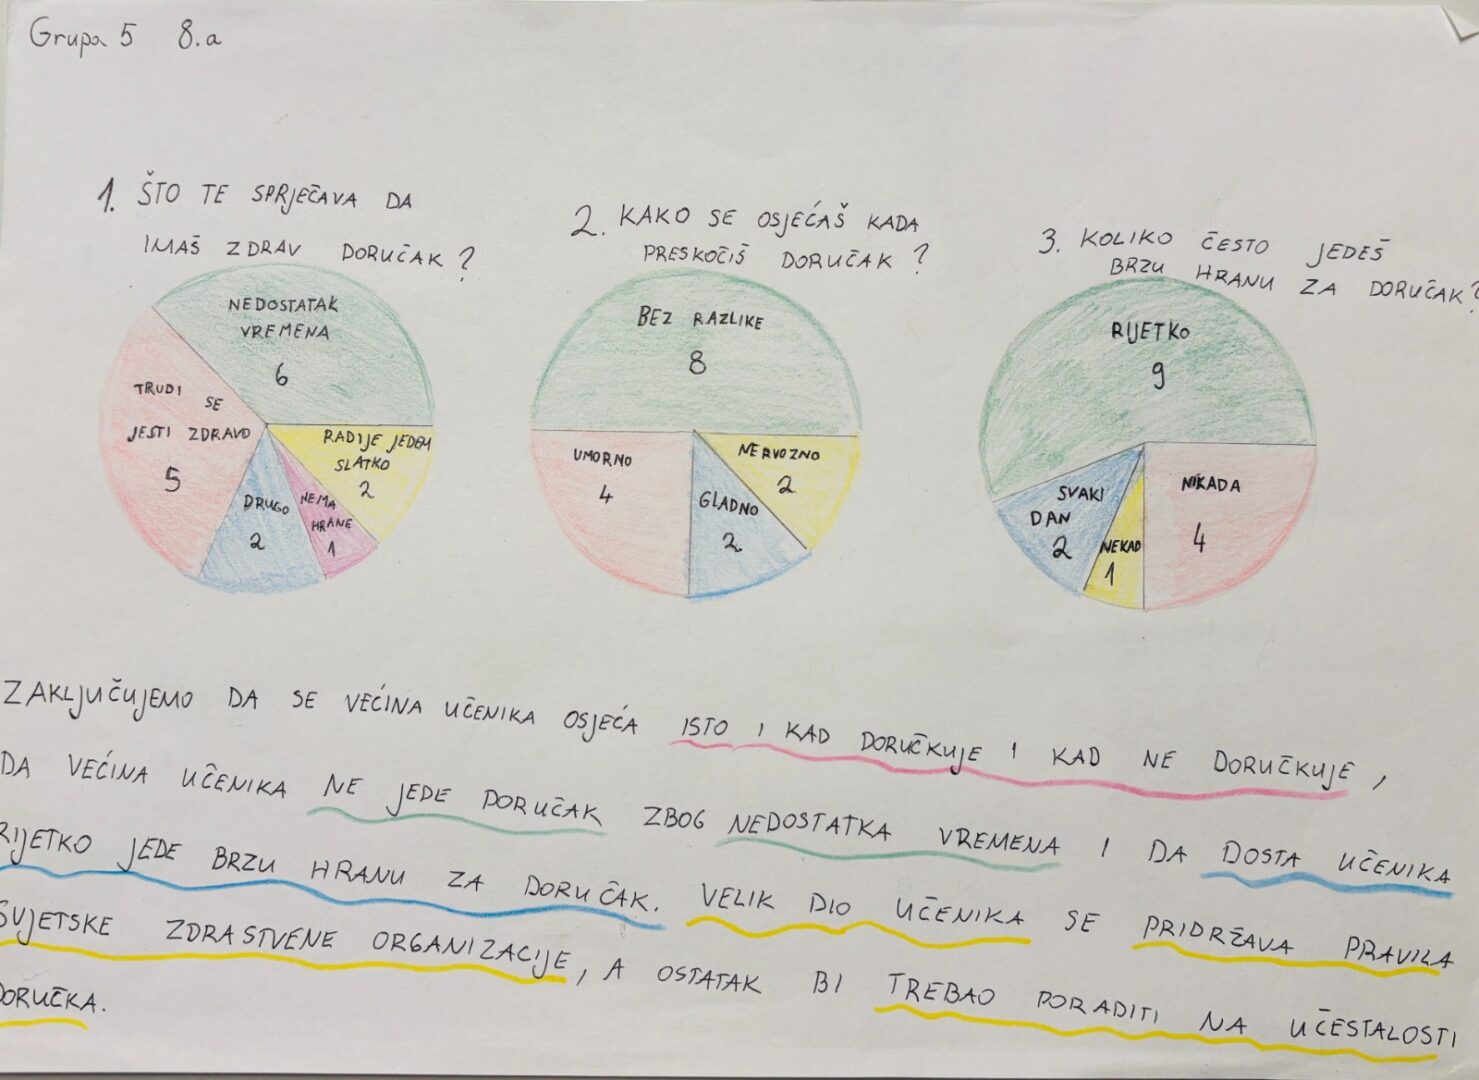 Grupa 5 8.a
1. ŠTO TE SPRJEČAVA DA
IMAŠ ZDRAV DORUČAK?
NEDOSTATAK
VREMENA
6
TRUDI SE
JESTI ZDRAVO
5
DRUGO
2
NEMA
HRANE
1
RADIJE JEDEM
SLATKO
2
2. KAKO SE OSJEĆAŠ KADA
PRESKOČIŠ DORUČAK?
BEZ RAZLIKE
8
UMORNO
4
GLADNO
2
NERVOZNO
2
3. KOLIKO ČESTO JEDEŠ
BRZU HRANU ZA DORUČAK?
RIJETKO
9
SVAKI
DAN
2
NEKAD
1
NIKADA
4
ZAKLJUČUJEMO DA SE VEĆINA UČENIKA OSJEĆA ISTO I KAD DORUČKUJE I KAD NE DORUČKUJE,
DA VEĆINA UČENIKA NE JEDE DORUČAK ZBOG NEDOSTATKA VREMENA I DA DOSTA UČENIKA
RIJETKO JEDE BRZU HRANU ZA DORUČAK. VELIK DIO UČENIKA SE PRIDRŽAVA PRAVILA
SVJETSKE ZDRASTVENE ORGANIZACIJE, A OSTATAK BI TREBAO PORADITI NA UČESTALOSTI
DORUČKA.